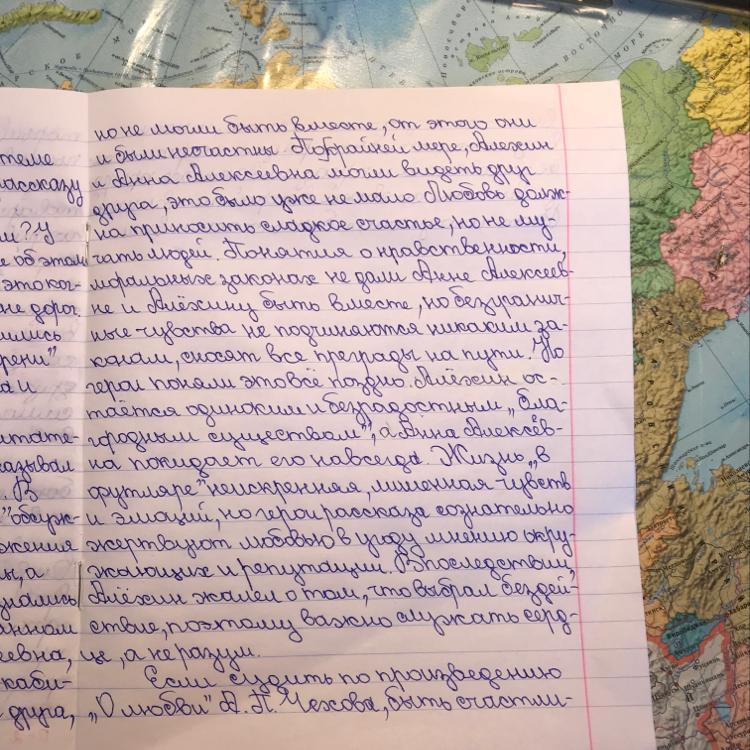 но не могли быть вместе, от этого они
и были несчастны. По крайней мере, Алёхин
и Анна Алексеевна могли видеть друг
друга, это было уже не мало. Любовь долж-
на приносить сладкое счастье, но не му-
чать людей. Понятия о нравственности,
моральных законах не дали Анне Алексеев-
не и Алёхину быть вместе, но безгранич-
ные чувства не подчиняются никаким за-
конам, сносят все преграды на пути. Но
герои поняли это всё поздно. Алёхин ос-
таётся одиноким и безрадостным „бла-
городным существом", а Анна Алексеев-
на покидает его навсегда. Жизнь „в
футляре" неискренняя, лишенная чувств
и эмоций, но герои рассказа сознательно
жертвуют любовью в угоду мнению окру-
жающих и репутации. Впоследствии,
Алёхин жалел о том, что выбрал бездей-
ствие, поэтому важно слушать серд-
це, а не разум.
Если судить по произведению
„О любви" А. П. Чехова, быть счастли-
теме
рассказу
м? У
е об этом
это ког-
не дорог.
шились
рени"
а и
итате-
казывал
. В
" обсуж-
жения
ы, а
знались
анном
еевна,
каби-
друга,
ВОСТОЧНО-
МОРЕ